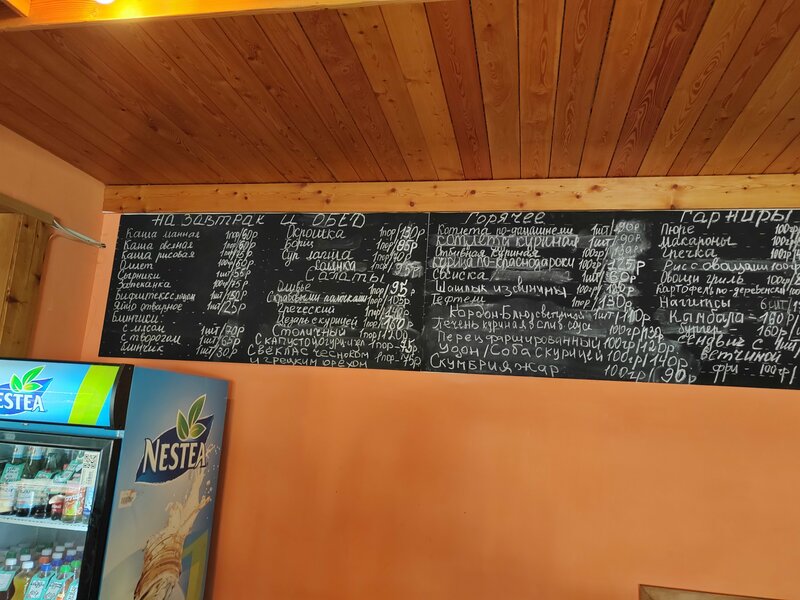 НА ЗАВТРАК И ОБЕД
Каша манная 1пор/60р
Каша овсяная 1пор/60р
Каша рисовая 1пор/65р
Омлет
Сырники 1шт/35р
Запеканка 100гр/75р
Бифитекс с яйцом 1шт/130
Яйцо отварное 1шт/25р
Блинчики
с мясом 1шт/70р
с творогом 1шт/60р
Блинчик 1шт/30р
Окрошка 1пор/130р
Борщ 1пор/95р
Суп лапша
Салаты
Оливье 1пор/95
С крабовыми палочками 1пор/105р
Греческий
Цезарь с курицей 1пор/160р
Столичный 1пор/120р
С капустой, огурц. и зел. 1пор-75р
Свекла с чесноком
и грецким орехом 1пор-75р
Горячее
Котлета по-домашнему 1шт/90р
Котлета куриная 1шт/90р
Отбивная куриная
Сосиска
Шашлык из свинины
Тефтели
Кордон-Блю с ветчиной
Печень куриная в слив. соусе
Перец фаршированный 100гр/130р
Удон/Соба с курицей 100гр/140р
Скумбрия жар 100гр/90р
Гарниры
Пюре 100гр
Макароны 100гр
Гречка 100гр
Рис с овощами 100гр
Овощи гриль 100гр
Картофель по-деревенски 100гр
Наггитсы 6шт/
Камбала-180
Бургер 160р/
Сендвич с
ветчиной
фри-100гр/
NESTEA
NESTEA